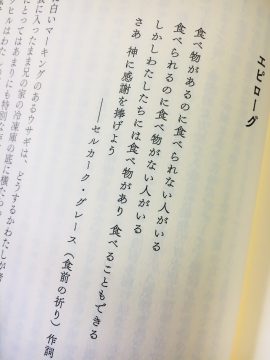 エピローグ
食べ物があるのに食べられない人がいる
食べられるのに食べ物がない人がいる
しかしわたしたちには食べ物があり 食べることもできる
さあ 神に感謝を捧げよう
――セルカーク・グレース（食前の祈り）作詞
白いマーキングのあるウサギは、どうするかわたしが考
に入ったまま兄の家の冷凍庫の底に横たわ
にとってはあまりにも特別な